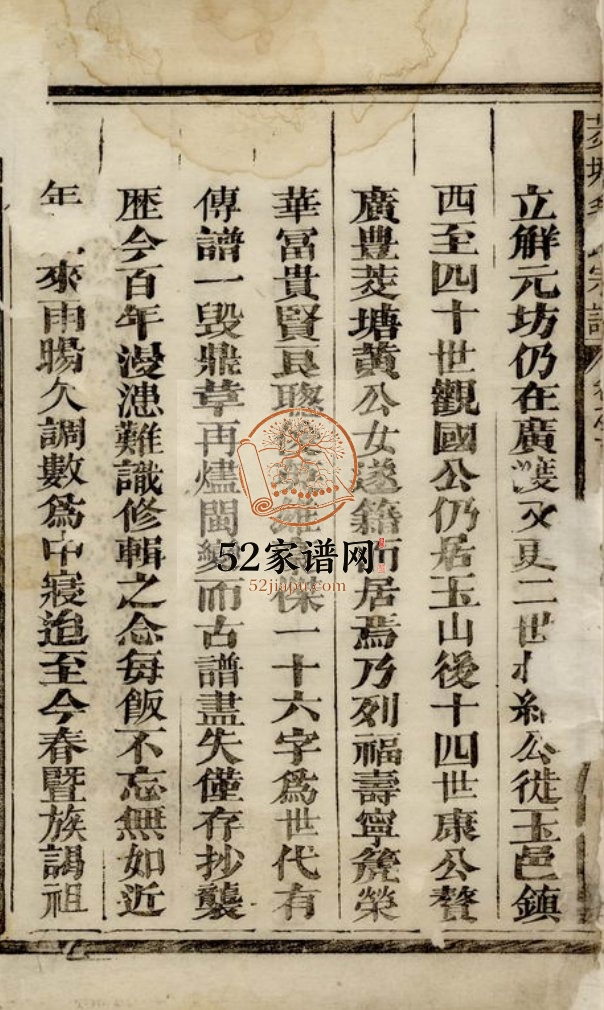 立解元坊仍在廣又更二世公徙玉邑鎮
西至四十世觀國公仍居玉山後十四世康公贅
廣豊茭塘黄公女遂籍而居焉乃列福壽寧榮
華冨貴賢良聰一十六字爲世代有
傳譜一毀鼎革再燼閩變而古譜盡失僅存抄襲
歴今百年漫漶難識修輯之念每飯不忘無如近
年來雨暘久調數爲中寢迨至今春暨族謁祖
宗譜
52家谱网
52jiapu.com